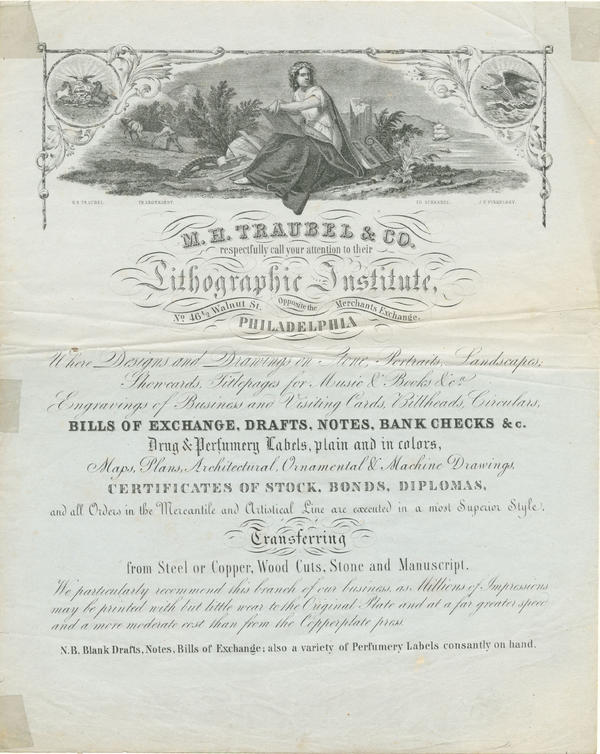 M. H. TRAUBEL.
TH. SCHNABEL.
M. H. TRAUBEL & CO.
respectfully call your attention to their
Lithographic Institute,
No 46½ Walnut St. Opposite the Merchants Exchange.
PHILADELPHIA
Where Designs and Drawings on Stone, Portraits, Landscapes;
Showcards, Titlepages for Music & Books &c.
Engravings of Business and Visiting Cards, Billheads, Circulars,
BILLS OF EXCHANGE, DRAFTS, NOTES, BANK CHECKS & c.
Drug & Perfumery Labels, plain and in colors,
Maps, Plans, Architectural, Ornamental & Machine Drawings,
CERTIFICATES OF STOCK, BONDS, DIPLOMAS,
and all Orders in the Mercantile and Artistical Line are executed in a most Superior Style.
Transferring
from Steel or Copper, Wood Cuts, Stone and Manuscript.
We particularly recommend this branch of our business, as Millions of Impressions
may be printed with but little wear to the Original Plate and at a far greater speed
and a more moderate cost than from the Copperplate press.
N.B. Blank Drafts, Notes, Bills of Exchange; also a variety of Perfumery Labels consantly on hand.